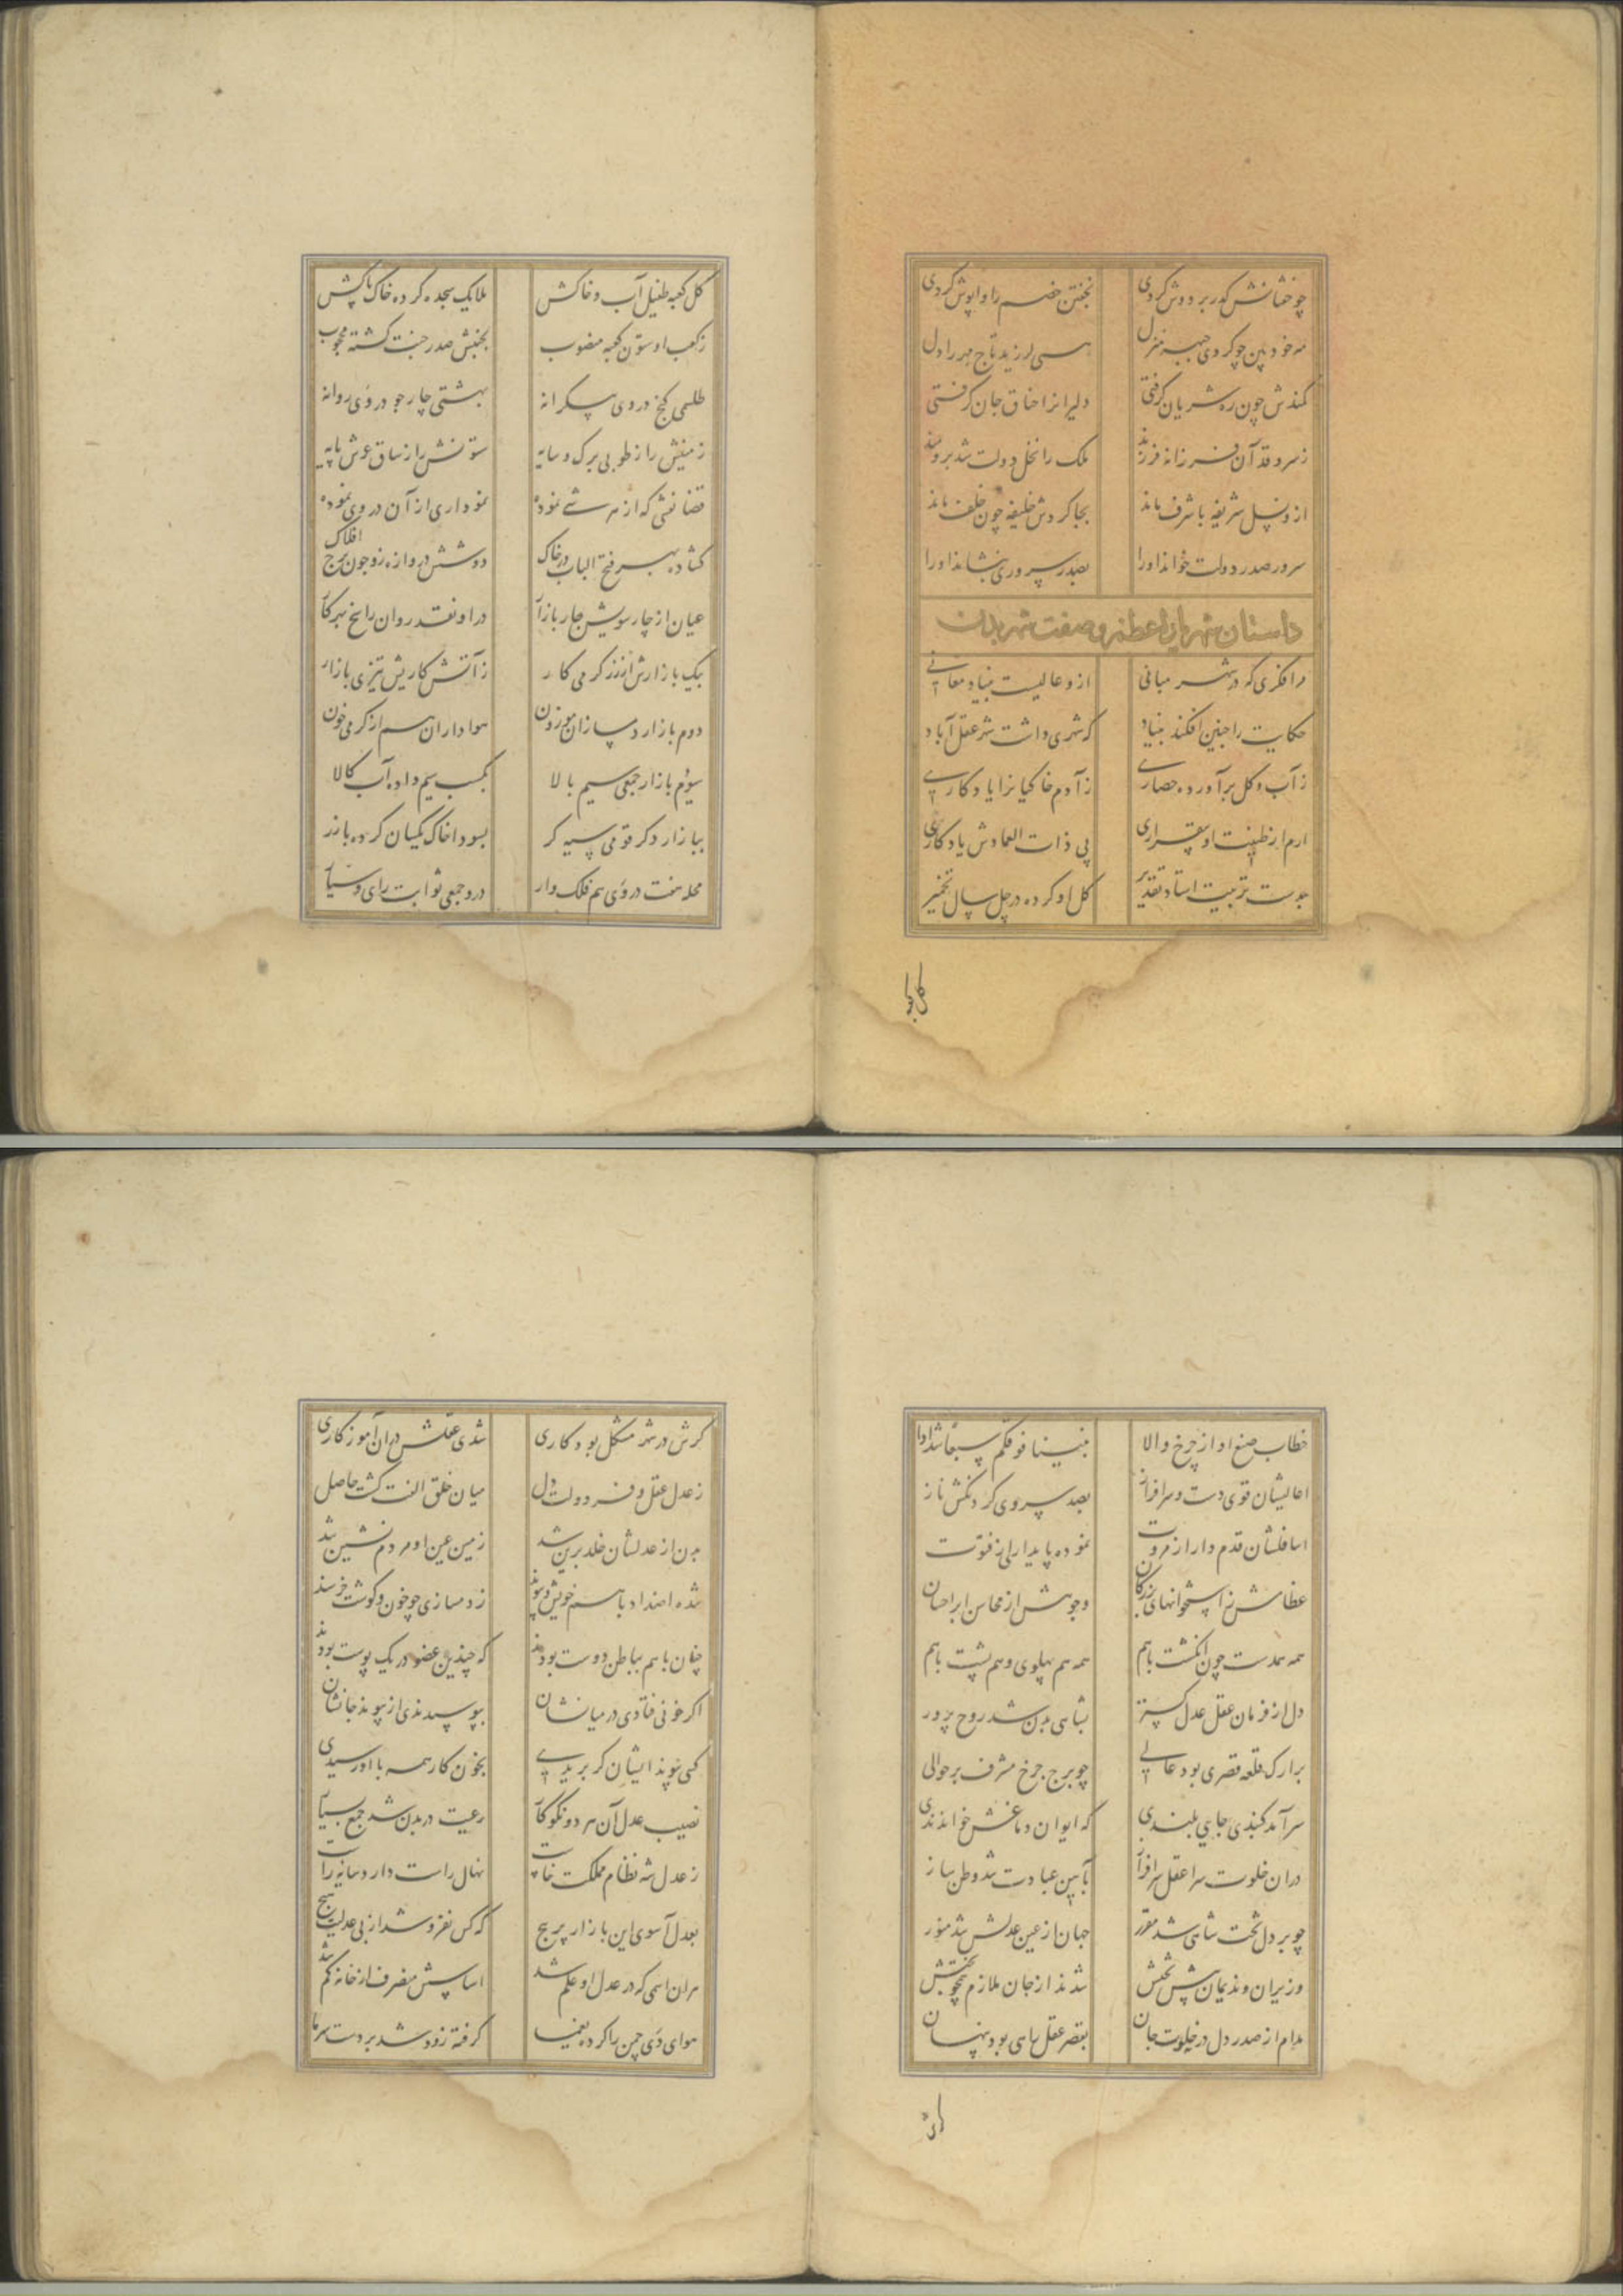 چو خفتانش کدر بر دوش کردی بجنتن خصم را واپوش کردی
مه خود بین چو کردی جبهه منزل بسی لرزید تاج مهر را دل
کمندش چون ره شریان گرفتی دلیرانرا خناق جان گرفتی
ز سرو قد آن فرزانه فرزند ملک را نخل دولت شد برومند
ازو نسل شریفه با شرف ماند بجا کردش خلیفه چون خلف ماند
سرور صدر دولت خواند او را بصدر سروری بنشاند او را
داستان شهریار اعظم و صفت شهر بدن
مرا فکری که در شهر مبانی ازو عالیست بنیاد معانی
حکایت را چنین افکند بنیاد که شهری داشت شه عقل آباد
ز آب و گل برآورده حصاری ز آدم خاکیانرا یادکاری
ارم از طینت او بیقراری پی ذات العمادش یادکاری
بدست تربیت استاد تقدیر کل او کرده در چل سال تخمیر
کل کعبه
کل کعبه طفیل آب و خاکش ملایک سجده کرده خاک پاکش
ز کعب او ستون کعبه منصوب بجنبش صدر جنت کشته محجوب
طلسمی کنج در وی بیکرانه بهشتی چار جو در وی روانه
زمینش را ز طوبی برک و سایه ستونش را ز ساق عرش پایه
قضا نقشی که از هر شی نموده نموداری از آن در وی نموده
کشاده بهر فتح الباب در خاک دو شش دروازه زو چون برج افلاک
عیان از چار سویش چار بازار در او نقد روان رایج بهر کار
یک بازارش از زر کرمی کار ز آتش کاریش تیزی بازار
دوم بازار دمسازان موزون هواداران هم از کرمی خون
سیوم بازار جمعی سیم بالا بکسب سیم داده آب کالا
ببازار دکر قومی سیه کر بسودا خاک یکسان کرده با زر
محله هفت در وی هم فلک وار درو جمعی ثوابت رای و سیار
خطاب صنع او از چرخ والا بنینا فوقکم سبعا شدادا
اعالیشان قوی دست و سرافراز بصد سروی کردنکش ناز
اسافلشان قدم دار از مروت نموده پایداری از فتوت
عظامش ز استخوانهای بزرکان وجوهش از محاسن ابر احسان
همه همدست چون انکشت باهم همه هم پهلوی و هم پشت باهم
دل از فرمان عقل عدل کستر بشاهی بدن شد روح پرور
بر ارک قلعه قصری بود عالی چو برج چرخ مشرف بر حوالی
سرآمد کنبدی جایی بلندی که ایوان دماغش خواندندی
در ان خلوت سرا عقل سرافراز بآیین عبادت شد وطن ساز
چو بر دل تخت شاهی شد مقرر جهان از عین عدلش شد منور
وزیران و ندیمان پیش تختش شدند از جان ملازم همچو بختش
مدام از صدر دل در خلوت جان بقصر عقل راهی بود پنهان
کرش در
کرش در شهر مشکل بود کاری شدی عقلش در ان آموزکاری
ز عدل عقل و فر دولت دل میان خلق الفت کشت حاصل
بدن از عدلشان خلد برین شد زمین عین او مردم نشین شد
شده اضداد باهم خویش و پیوند ز دمسازی چو خون و کوشت خرسند
چنان باهم بباطن دوست بودند که چندین عضو در یک پوست بودند
اکر خونی فتادی در میانشان بپوسیدندی از پیوند جانشان
کسی پیوند ایشان کر بریدی بخون کار همه با او رسیدی
نصیب عدل آن هر دو نکوکار رعیت در بدن شد جمع بسیار
ز عدل شه نظام مملکت خاست نهال راست دارد سایه راست
بعدل آسوی این بازار پر پیچ که کس نفروشد از بی عدل هیچ
هران اسمی که در عدل او علم شد اساسش منصرف از خانه کم شد
هوای دی چمن را کرده یغما کرفته زود شد بر دست سرما